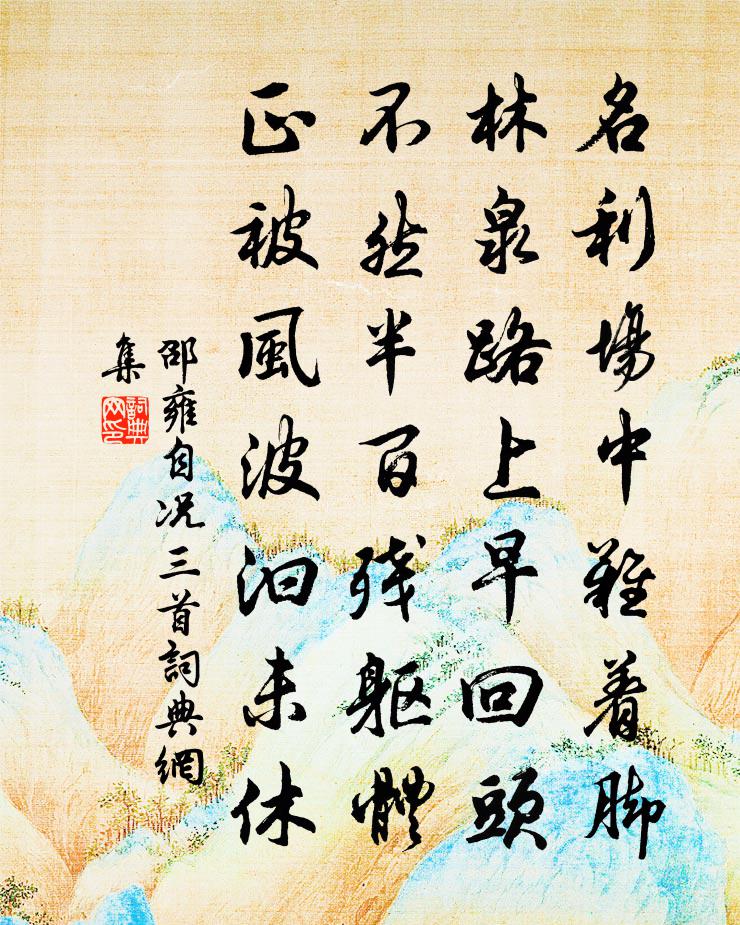 名利場中難着脚
林泉路上早回頭
不然半百殘軀體
正被風波汩未休
邵雍自况三首詞典網
集
詞典
网印